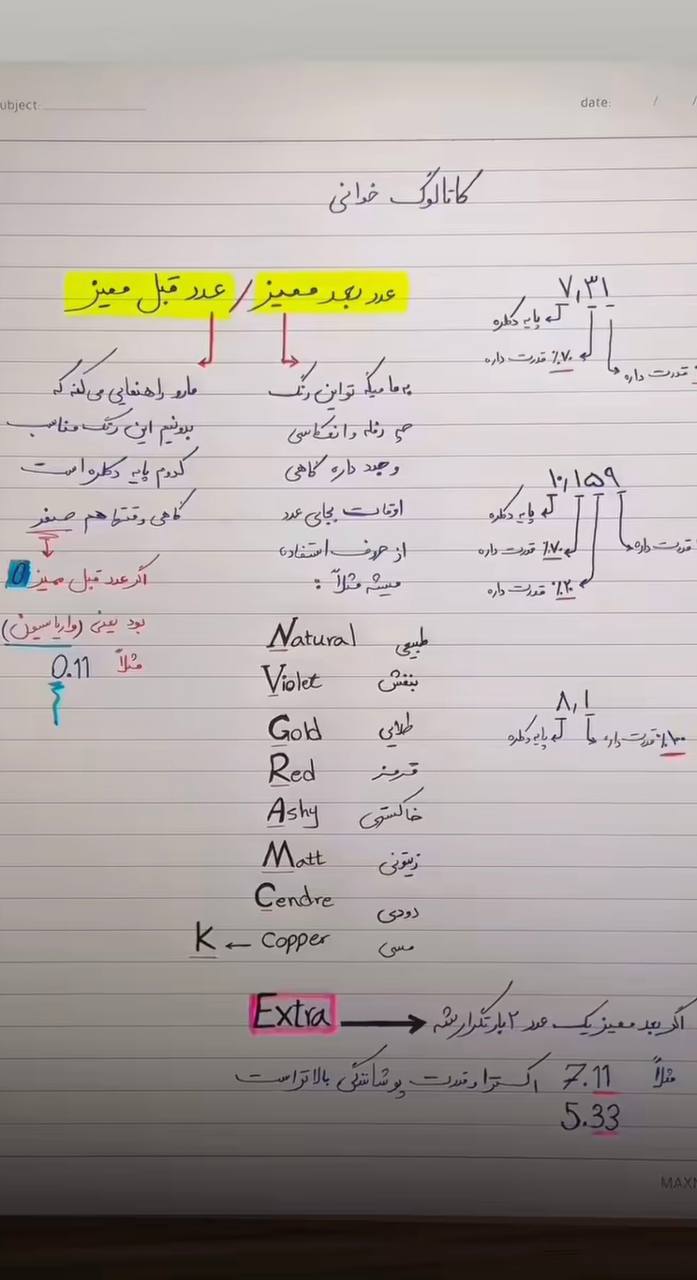 ubject:
date: / /
کاتالوگ خوانی
عدد بعد ممیز / عدد قبل ممیز
به ما میگه تو این رنگ
چه رفله و انعکاسی
وجود داره گاهی
اوقات بجای عدد
از حروف استفاده
میشه مثلاً :
مارو راهنمایی می‌کنه که
بدونیم این رنگ مناسب
کدوم پایه دکلره است
گاهی وقتها هم صیفر
اگر عدد قبل ممیز 0
بود یعنی (واریاسیون)
مثلاً 0.11
۷,۳۱
پایه دکلره
٪۷۰ قدرت داره
قدرت داره
۱۰,۱۵۹
پایه دکلره
٪۷۰ قدرت داره
٪۲۰ قدرت داره
قدرت داره
۸,۱
پایه دکلره
٪۱۰۰ قدرت داره
Natural طبیعی
Violet بنفش
Gold طلایی
Red قرمز
Ashy خاکستری
Matt زیتونی
Cendre دودی
K ← Copper مسی
Extra → اگر بعد ممیز یک عدد ۲ بار تکرار بشه
مثلاً 7.11 اکسترا و قدرت پوشانندگی بالاتر است
5.33
MAX